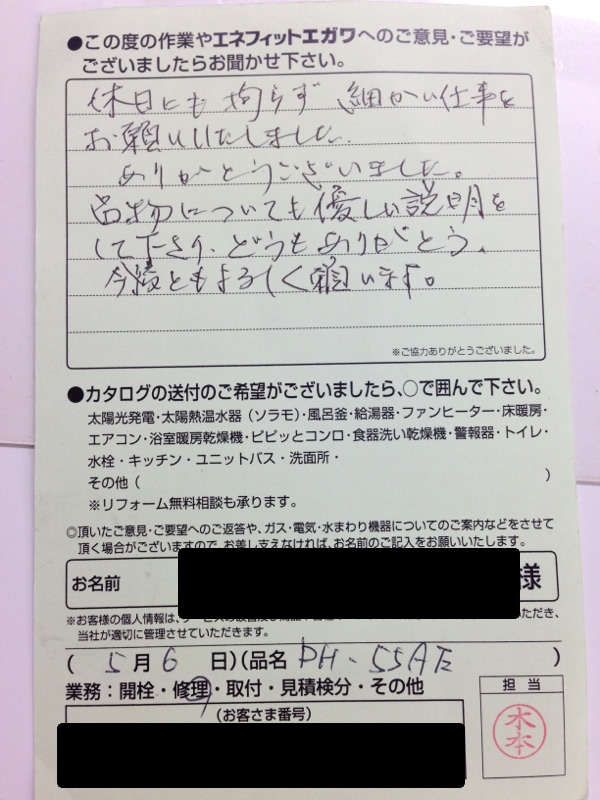 ●この度の作業やエネフィットエガワへのご意見・ご要望が
ございましたらお聞かせ下さい。
休日にも拘らず 細かい仕事を
お願いいたしました.
ありがとうございました。
品物についても優しい説明を
して下さり、どうもありがとう、
今後ともよろしく願います。
※ご協力ありがとうございました。
●カタログの送付のご希望がございましたら、○で囲んで下さい。
太陽光発電・太陽熱温水器（ソラモ）・風呂釜・給湯器・ファンヒーター・床暖房・
エアコン・浴室暖房乾燥機・ピピッとコンロ・食器洗い乾燥機・警報器・トイレ・
水栓・キッチン・ユニットバス・洗面所・
その他（ ）
※リフォーム無料相談も承ります。
◎頂いたご意見・ご要望へのご返答や、ガス・電気・水まわり機器についてのご案内などをさせて
頂く場合がございますので、お差し支えなければ、お名前のご記入をお願いいたします。
お名前 様
※お客様の個人情報は、 いただき、
当社が適切に管理させていただきます。
( 5月 6 日)(品名 PH-55AE )
業務：開栓・修理・取付・見積検分・その他
担当
(お客さま番号)
木本